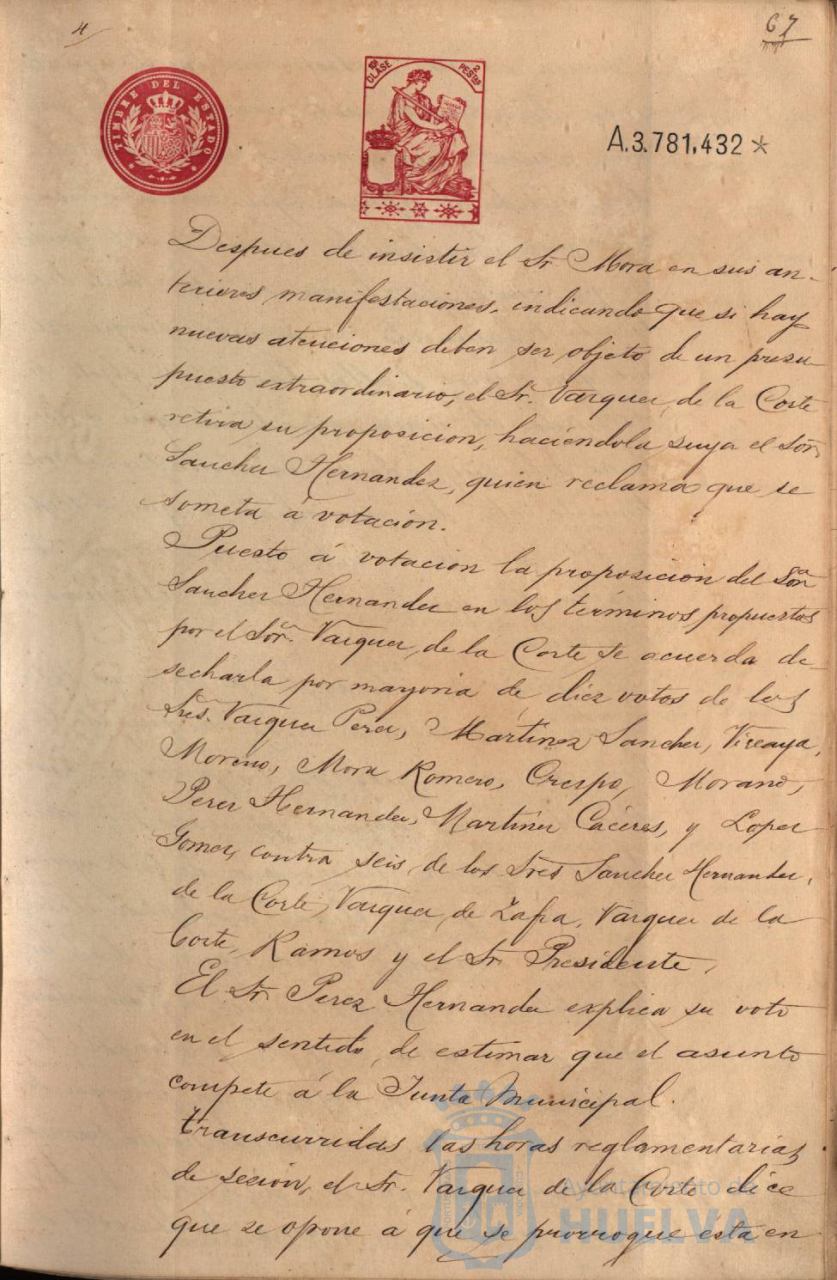 4
67
TIMBRE DEL ESTADO
10ª CLASE 2 PESTAS
A.3.781,432*
Despues de insistir el Sr Mora en sus an-
teriores manifestaciones, indicando que si hay
nuevas atenciones deben ser objeto de un presu
puesto extraordinario, el Sr. Vazquez de la Corte
retira su proposicion, haciéndola suya el Sor
Sanchez Hernandez, quien reclama que se
someta á votación.
Puesto á votacion la proposicion del Sor
Sanchez Hernandez en los términos propuestos
por el Sor. Vazquez de la Corte se acuerda de
secharla por mayoria de diez votos de los
Sres. Vazquez Perez, Martinez Sanchez, Vizcaya,
Moreno, Mora Romero, Crespo, Morano,
Perez Hernandez, Martinez Cáceres, y Lopez
Gomez, contra seis de los Sres Sanchez Hernandez,
de la Corte, Vazquez de Zafra, Vazquez de la
Corte, Ramos y el Sr Presidente.
El Sr Perez Hernandez explica su voto
en el sentido de estimar que el asunto
compete á la Junta Municipal.
Transcurridas las horas reglamentarias
de sesión, el Sr. Vazquez de la Corte dice
que se opone á que se prorrogue esta en
Ayuntamiento de
HUELVA